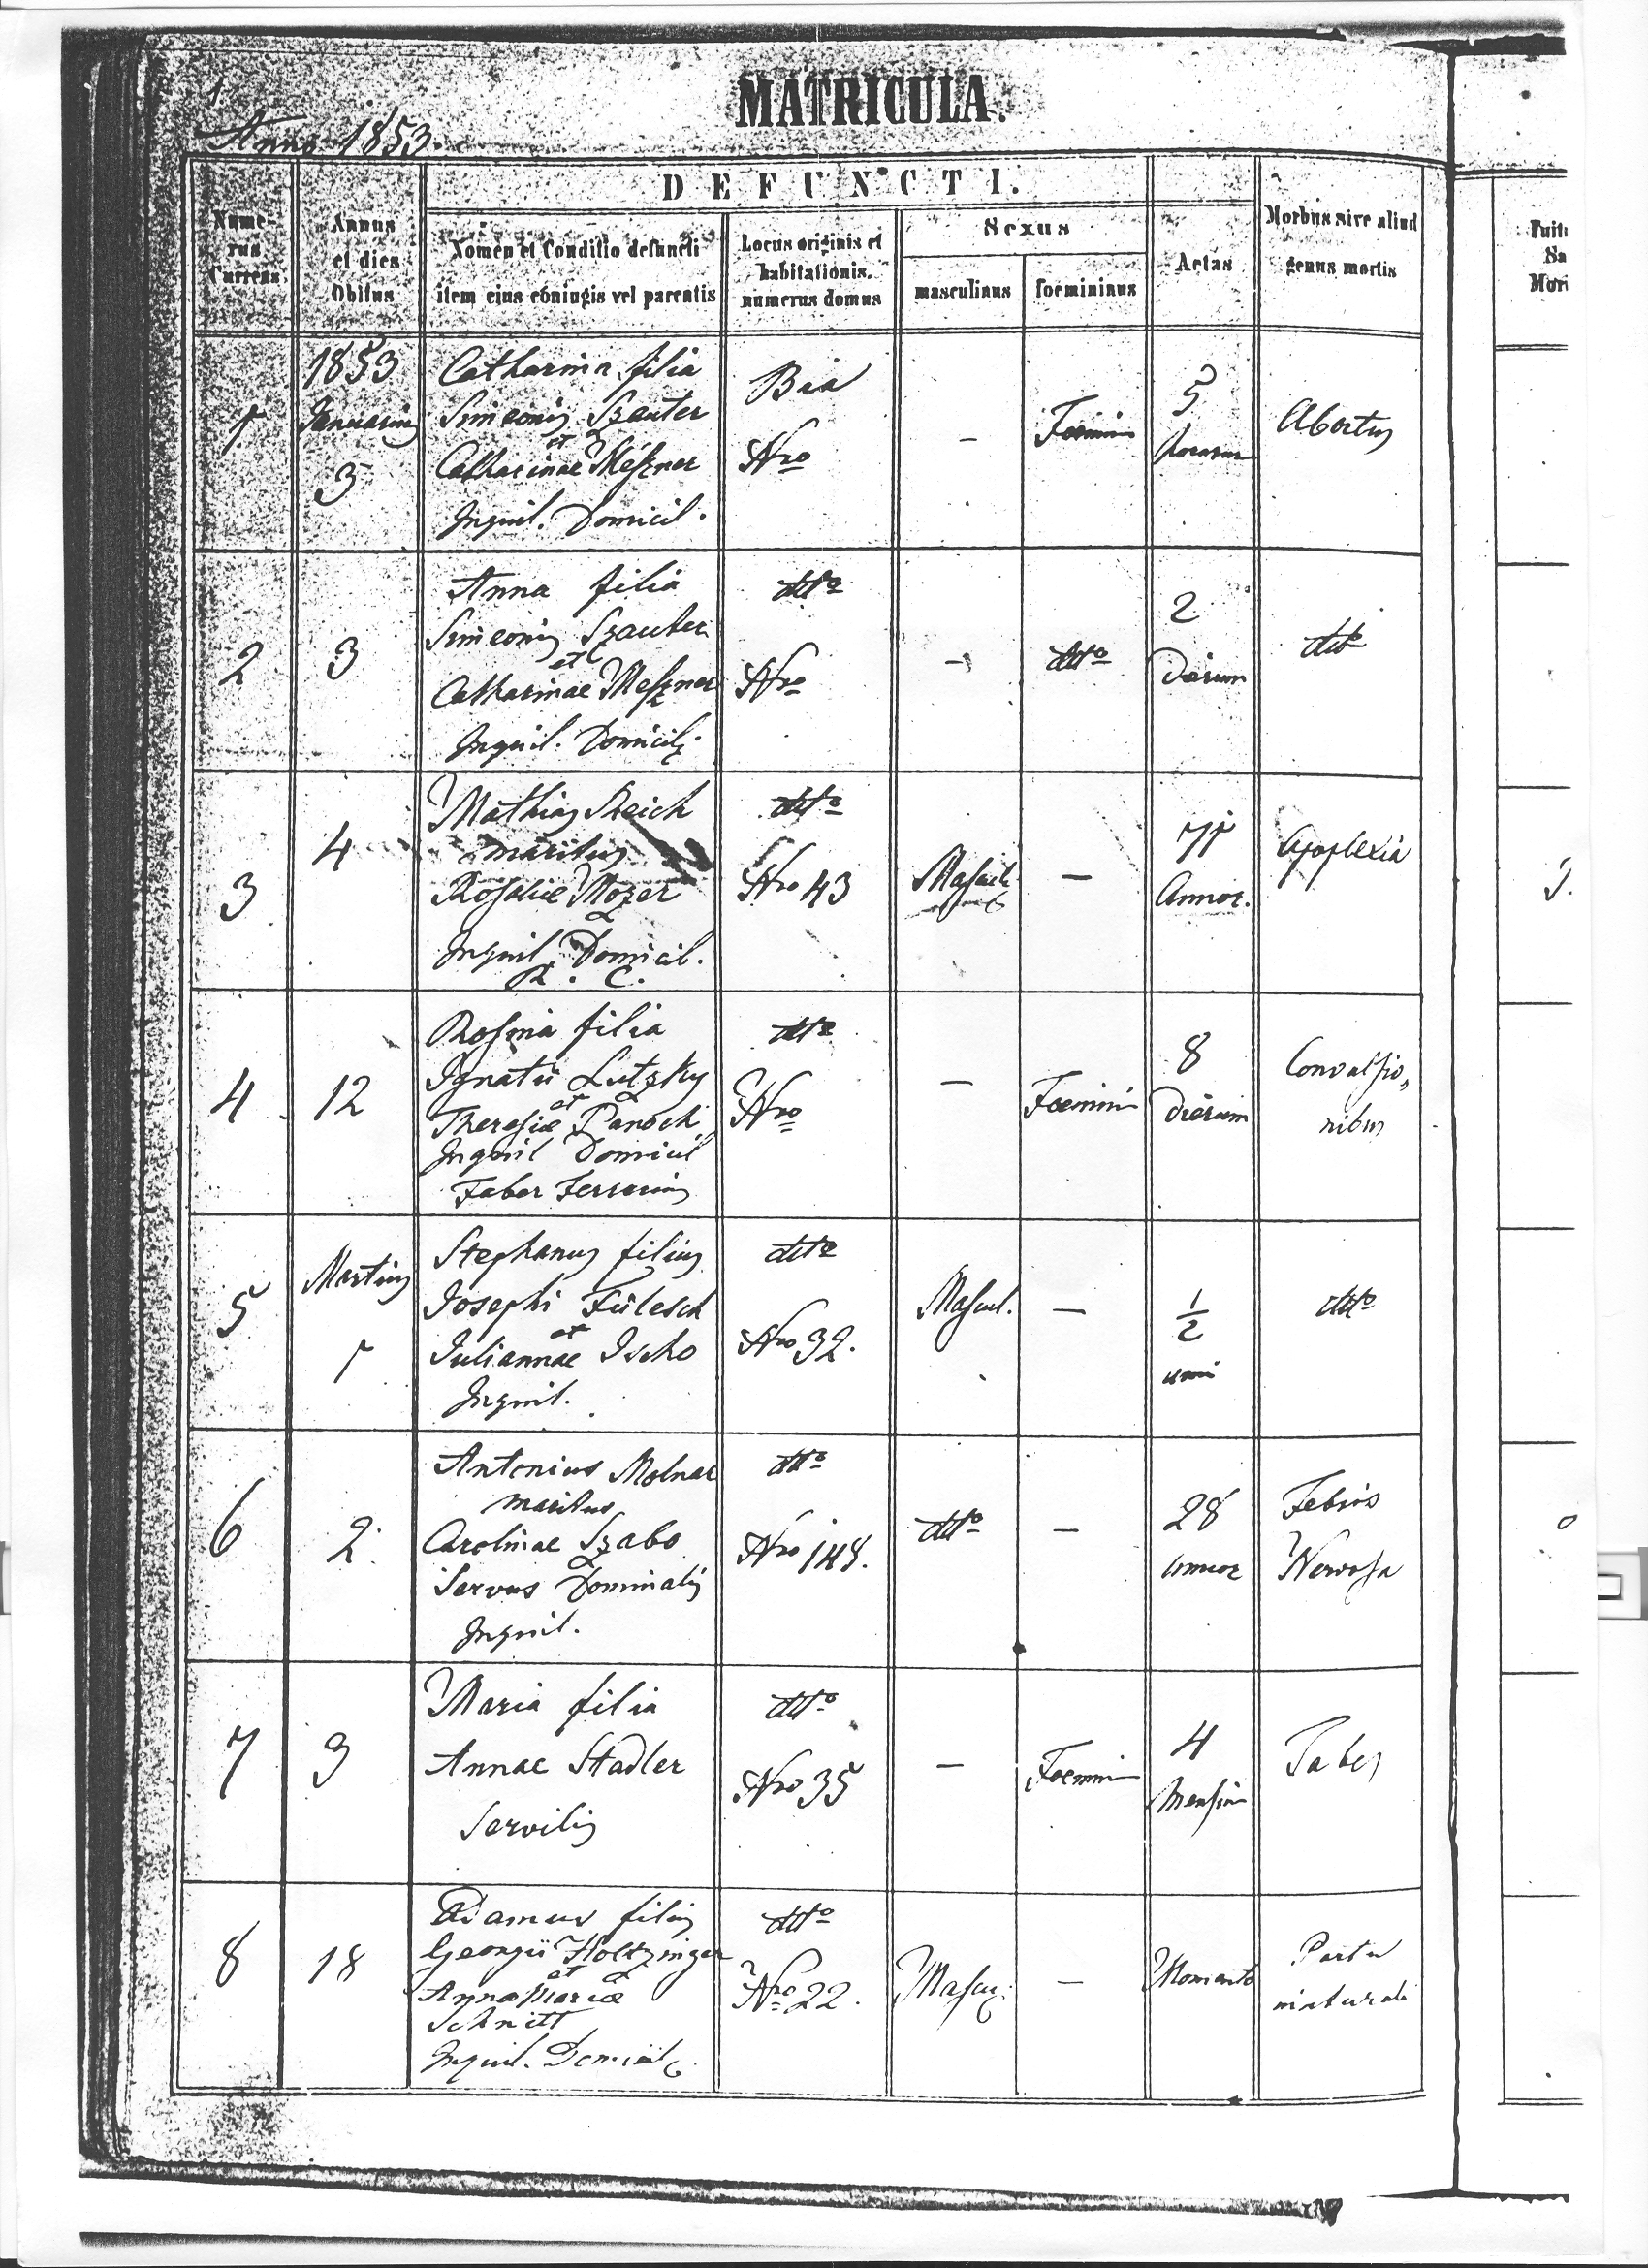 1
MATRICULA.
Anno 1853.
DEFUNCTI.
Nume-
rus
Currens
Annus
et dies
Obitus
Nomen et Conditio defuncti
item eius coniugis vel parentis
Locus originis et
habitationis,
numerus domus
Sexus
masculinus
foemininus
Aetas
Morbus sive aliud
genus mortis
1
1853
Januarius
3
Catharina filia
Simeonis Szauter
et
Catharinae Meszner
Inquil. Domicil.
Bia
Nro
-
Foemin
5
horarum
Abortus
2
3
Anna filia
Simeonis Szauter
et
Catharinae Meszner
Inquil. Domicil.
dtto
Nro
-
dtto
2
Dierum
dtto
3
4
Mathias Reich
maritus
Rosaliae Mozer
Inquil. Domicil.
R. C.
dtto
Nro 43
Mascul.
-
71
Annor.
Apoplexia
4
12
Rosina filia
Ignatii Lutzky
et
Theresiae Panoch
Inquil Domicil
Faber Ferrarius
dtto
Nro
-
Foemin
8
Dierum
Convulsio,
nibus
5
Martius
1
Stephanus filius
Josephi Fülesch
et
Juliannae Ischo
Inquil.
dtto
Nro 32.
Mascul.
-
1/2
anni
dtto
6
2.
Antonius Molnar
maritus
Carolinae Szabo
Servus Dominalis
Inquil.
dtto
Nro 148.
dtto
-
28
annor
Febris
Nervosa
7
3
Maria filia
Annae Stadler
Servilis
dtto
Nro 35
-
Foemin
4
Mensium
Tabes
8
18
Adamus filius
Georgii Holtzinger
et
Annae Mariae
Schnitt
Inquil. Domicil.
dtto
Nro 22.
Mascu.
-
Momento
Partu
naturali